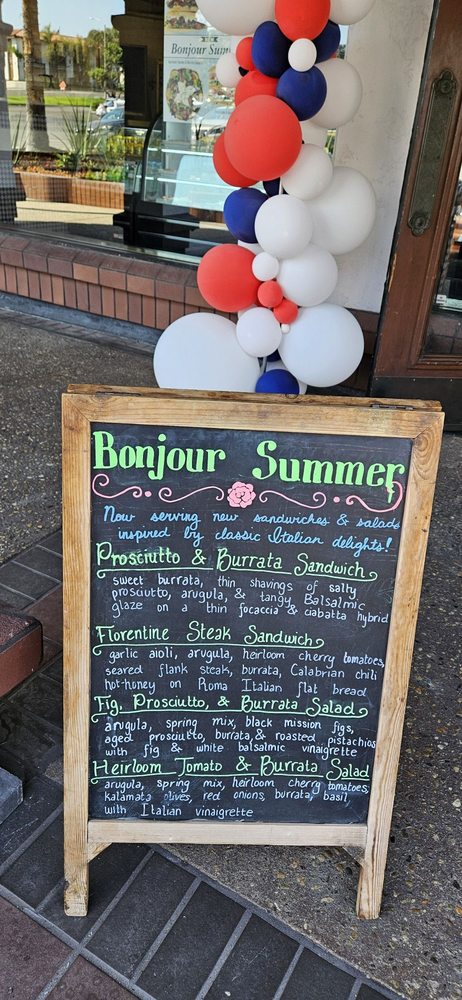 Bonjour Sum
Bonjour Summer
Now serving new sandwiches & salads
inspired by classic Italian delights!
Prosciutto & Burrata Sandwich
sweet burrata, thin shavings of salty
prosciutto, arugula, & tangy Balsalmic
glaze on a thin focaccia & ciabatta hybrid
Florentine Steak Sandwich
garlic aioli, arugula, heirloom cherry tomatoes,
seared flank steak, burrata, Calabrian chili
hot-honey on Roma Italian flat bread
Fig, Prosciutto, & Burrata Salad
arugula, spring mix, black mission figs,
aged prosciutto, burrata, & roasted pistachios
with fig & white balsalmic vinaigrette
Heirloom Tomato & Burrata Salad
arugula, spring mix, heirloom cherry tomatoes
kalamata olives, red onions, burrata, basil
with Italian vinaigrette